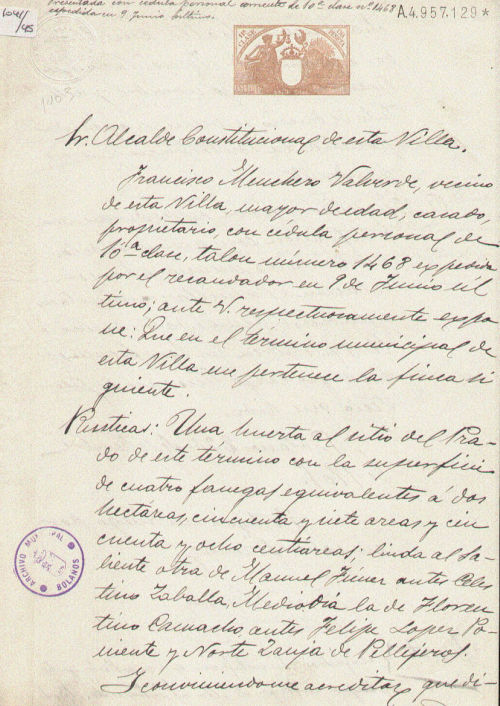 Presentada con cédula personal corriente de 10ª clase nº 1468
expedida en 9 Junio último.
A.4.957.129*
1041/
45
1003
Sr. Alcalde Constitucional de esta Villa.
Francisco Menchero Valverde, vecino
de esta Villa, mayor de edad, casado,
propietario, con cédula personal de
10ª clase, talon número 1468 expedida
por el recaudador en 9 de Junio úl
timo; ante V. respetuosamente expo
ne: Que en el término municipal de
esta Villa me pertenece la finca si
guiente.
Rústicas: Una huerta al sitio del Pra-
do de este término con la superficie
de cuatro fanegas, equivalentes á dos
hectáreas, cincuenta y siete areas y cin
cuenta y ocho centiáreas; linda al Sa-
liente otra de Manuel antes Celes
tino Zaballa, Mediodía la de Floren
tino Camacho, antes Felipe Lopez Po
niente y Norte Zanja de Pellejeros.
Y conviniendome acreditar que di-
ARCHIVO MUNICIPAL
BOLAÑOS